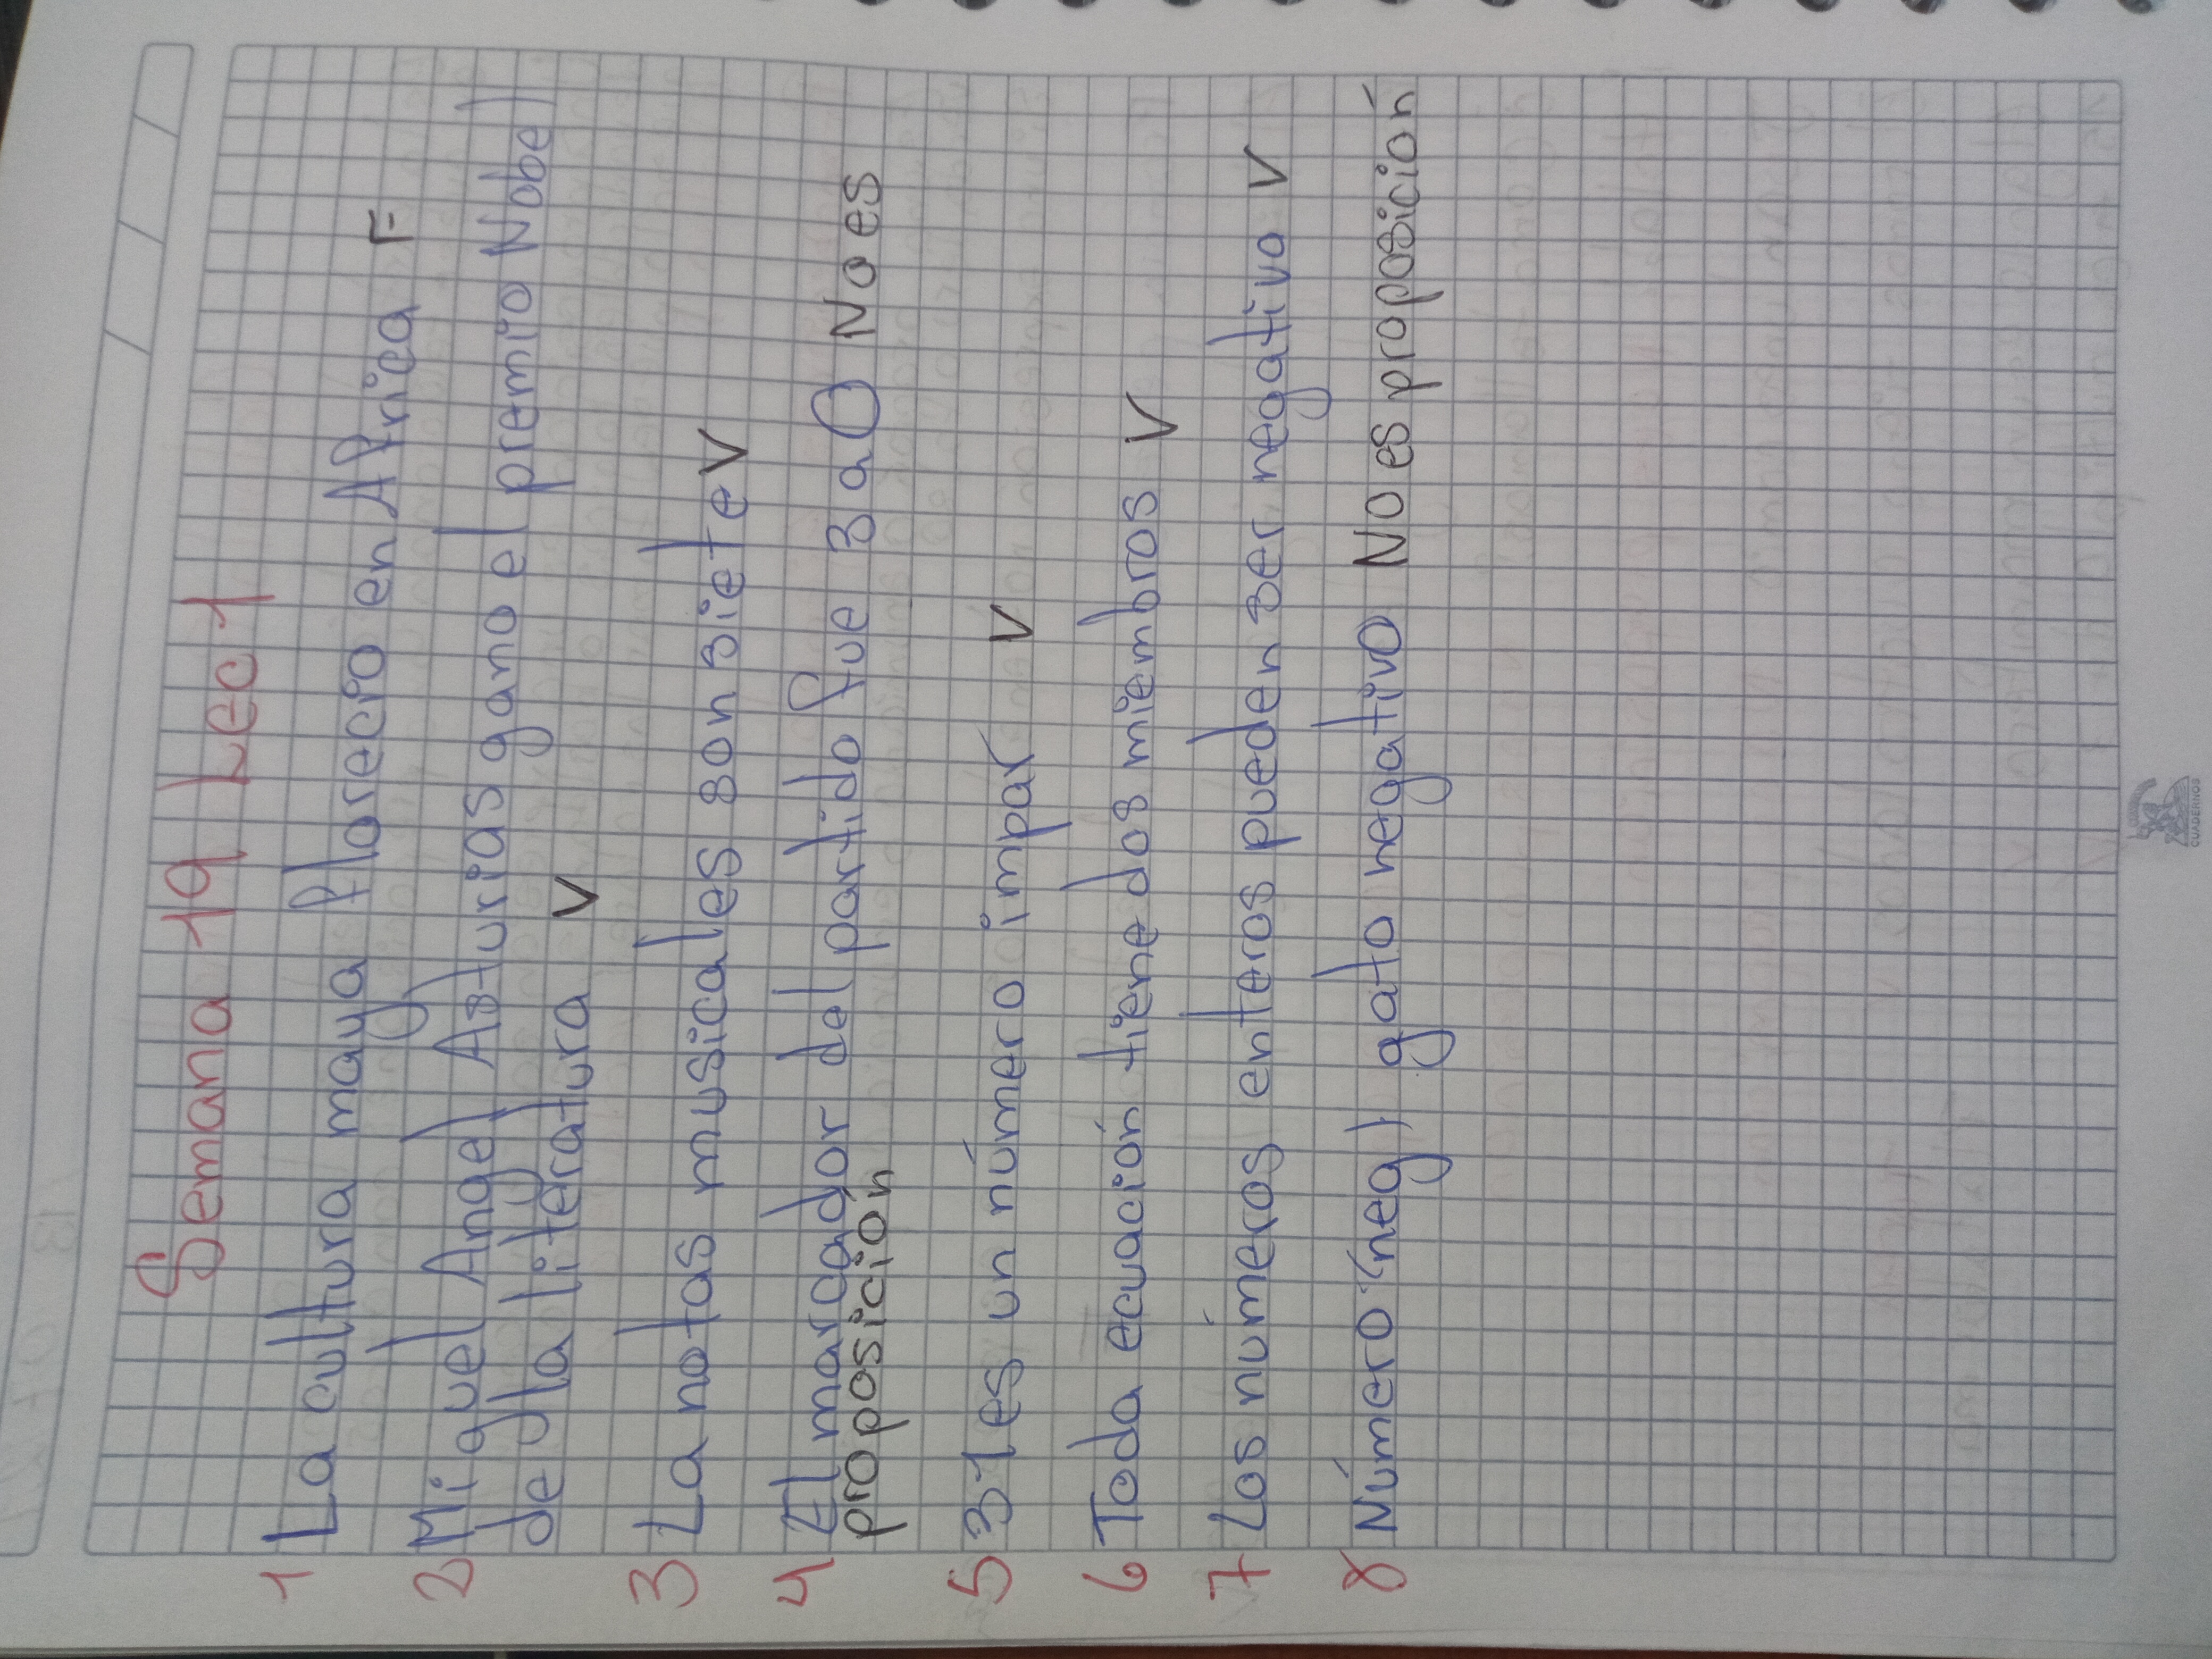 Semana 19 Lec 1
1 La cultura maya florecio en Africa F
2 Miguel Angel Asturias gano el premio Nobel
de la literatura V
3 La notas musicales son siete V
4 El marcador del partido fue 3 a 0 No es
proposición
5 31 es un número impar V
6 Toda ecuación tiene dos miembros V
7 Los números enteros pueden ser negativo V
8 Número neg, gato negativo No es proposición
CUADERNOS